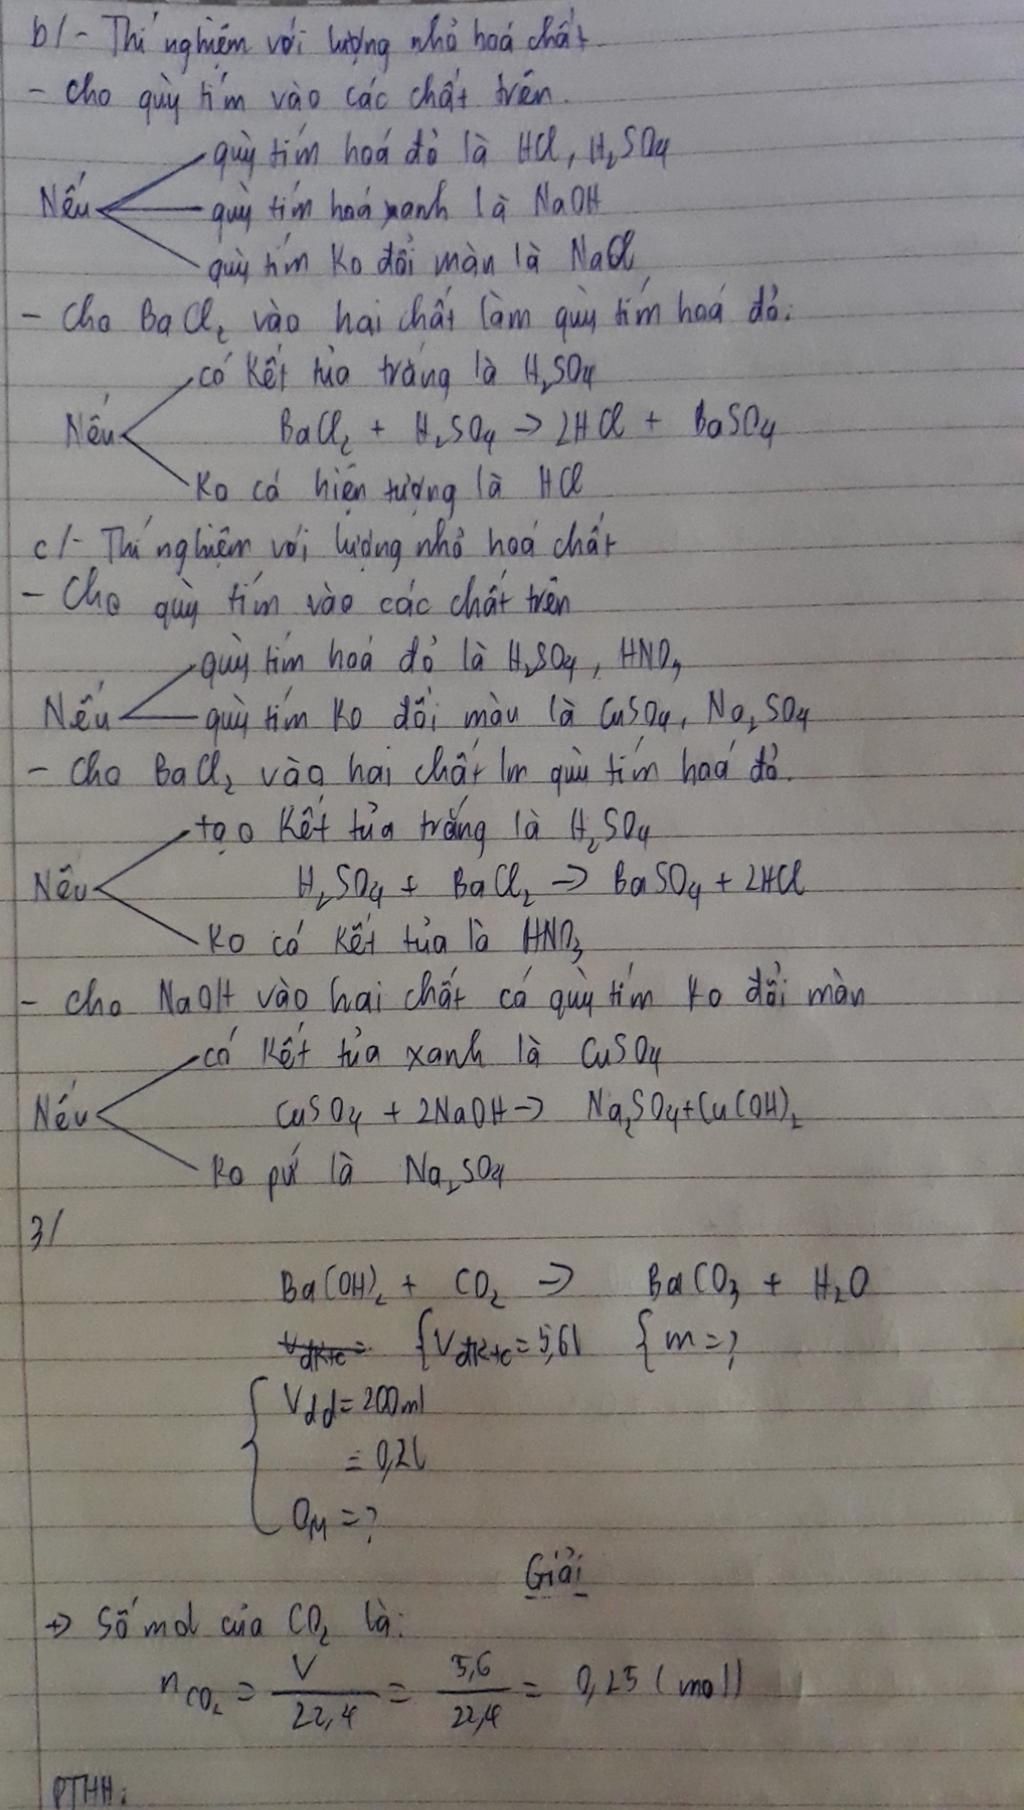 b/- Thí nghiệm với lượng nhỏ hoá chất
- Cho quỳ tím vào các chất trên.
quỳ tím hoá đỏ là HCl, H₂SO₄
Nếu quỳ tím hoá xanh là NaOH
quỳ tím Ko đổi màn là NaCl
- Cho BaCl₂ vào hai chất làm quỳ tím hoá đỏ.
có Kết tủa trắng là H₂SO₄
Nếu BaCl₂ + H₂SO₄ → 2HCl + BaSO₄
Ko có hiện tượng là HCl
c/- Thí nghiệm với lượng nhỏ hoá chất
- Cho quỳ tím vào các chất trên
quỳ tím hoá đỏ là H₂SO₄, HNO₃
Nếu quỳ tím Ko đổi màu là CuSO₄, Na₂SO₄
- Cho BaCl₂ vào hai chất lm quỳ tím hoá đỏ.
tạo Kết tủa trắng là H₂SO₄
Nếu H₂SO₄ + BaCl₂ → BaSO₄ + 2HCl
Ko có Kết tủa là HNO₃
- Cho NaOH vào hai chất có quỳ tím Ko đổi màn
có Kết tủa xanh là CuSO₄
Nếu CuSO₄ + 2NaOH → Na₂SO₄ + Cu(OH)₂
Ko pứ là Na₂SO₄
3/
Ba(OH)₂ + CO₂ → BaCO₃ + H₂O
Vđktc = { Vđktc = 5,6l { m = ?
{ Vdd = 200ml
= 0,2l
CM = ?
Giải
→ Số mol của CO₂ là:
nCO₂ = V/22,4 = 5,6/22,4 = 0,25 (mol)
PTHH: